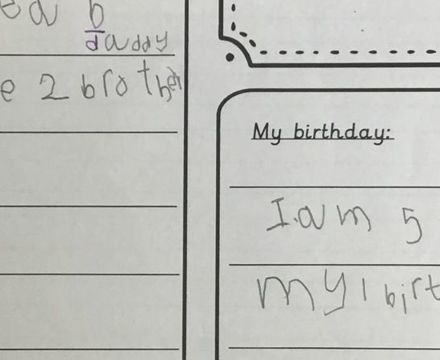 b
daddy
e 2 brother
My birthday:
I am 5
my birt